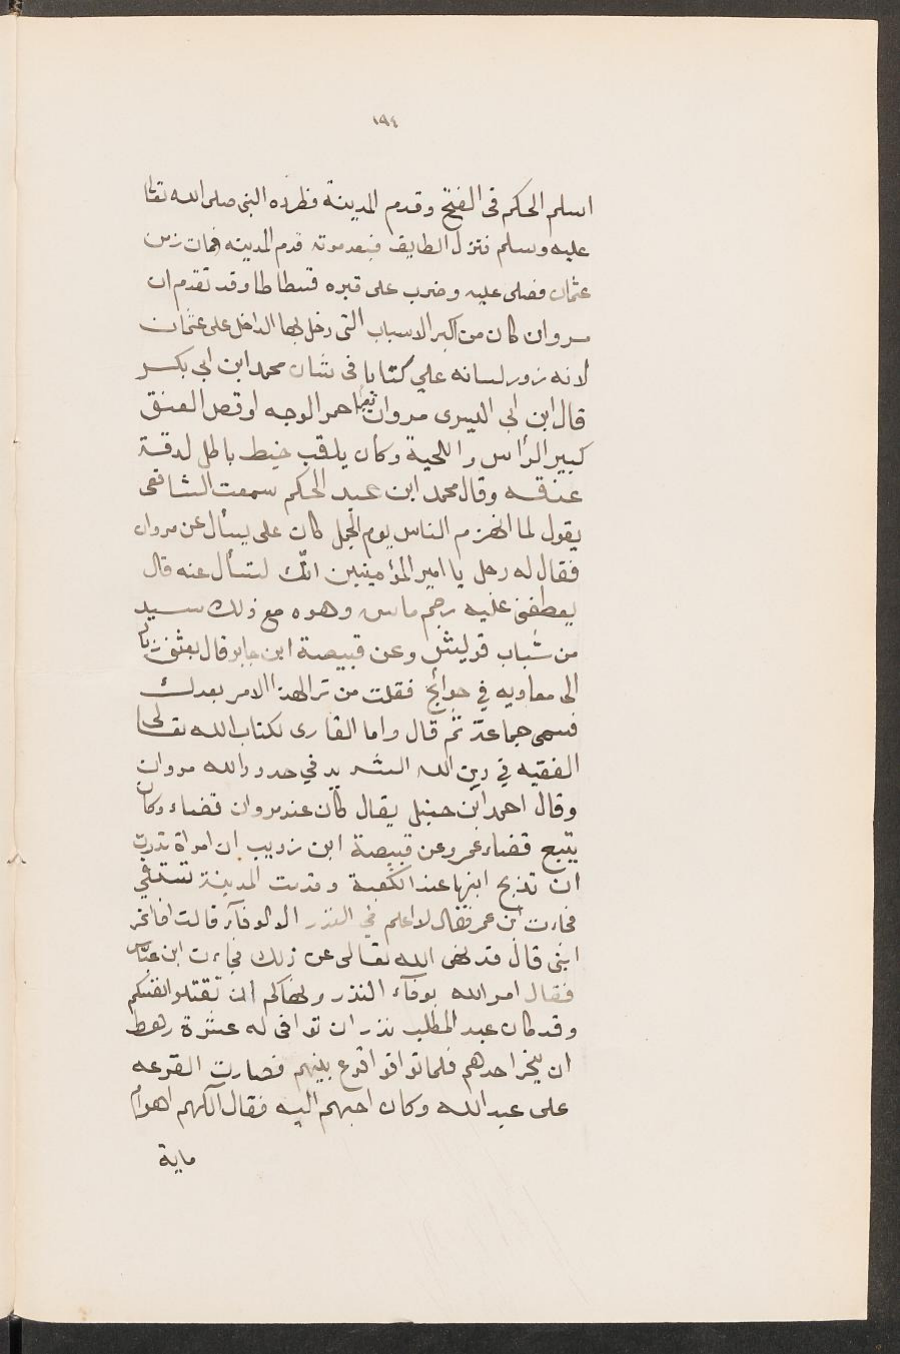 ١٩٤
اسلم الحكم فى الفتح وقدم المدينة فطرده النبى صلى الله تعالى
عليه وسلم فنزل الطايف فبعد موته قدم المدينه فمات زمن
عثمان فصلى عليه وضرب على قبره فسطاطا وقد تقدم ان
مروان كان من اكبر الاسباب التى دخل بها الداخل على عثمان
لانه زور لسانه علي كتابا فى شان محمد ابن ابى بكر
قال ابن ابى السرى مروان احمر الوجه اوقص العنق
كبير الرأس واللحية وكان يلقب خيط باطل لدقة
عنقه وقال محمد ابن عبد الحكم سمعت الشافعى
يقول لما انهزم الناس يوم الجمل كان على يسأل عن مروان
فقال له رجل يا امير المؤمنين انك لتسأل عنه قال
يعطفنى عليه رحم ماس وهوه مع ذلك سيد
من شباب قريش وعن قبيصة ابن جابر قال بعثنى زياد
الى معاويه في حوائج فقلت من ترا لهذا الامر بعدك
فسمى جماعة ثم قال واما القارى لكتاب الله تعالى
الفقيه في دين الله الشديد في حدود الله مروان
وقال احمد ابن حنبل يقال كان عند مروان قضاء وكان
يتبع قضاء عمر وعن قبيصة ابن زويب ان امراة نذرت
ان تذبح ابنها عند الكعبة وقدمت المدينة تستفتي
فجاءت ابن عمر فقال لا اعلم في النذر الا الوفآء قالت افانحر
ابنى قال قد نهى الله تعالى عن ذلك فجاءت ابن عباس
فقال امر الله بوفآء النذر ونهاكم ان تقتلوا انفسكم
وقد كان عبد المطلب نذر ان توافى له عشرة رهط
ان ينحر احدهم فلما توافو اقرع بينهم فصارت القرعه
على عبد الله وكان احبهم اليه فقال اللهم اهو ام
ماية